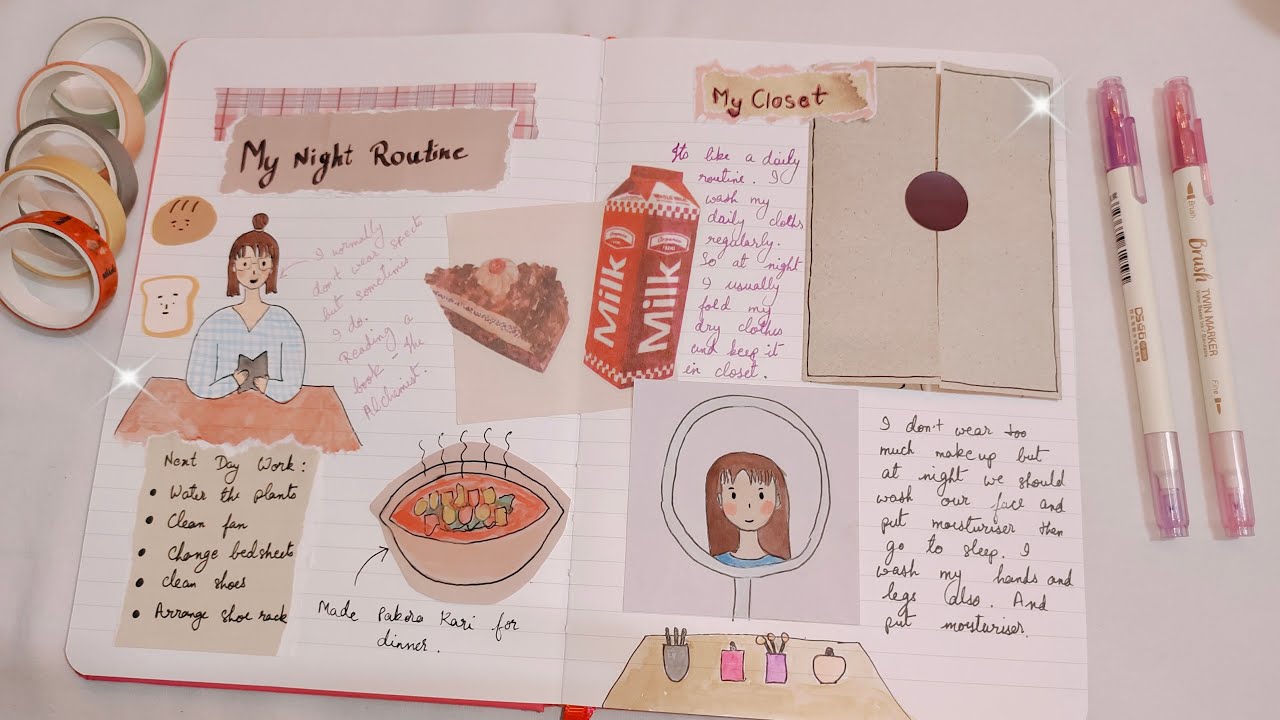 My Night Routine
I normally
don't wear spects
but sometimes
I do.
Reading a
book - the
Alchemist.
Next Day Work:
• Water the plants
• Clean fan
• Change bedsheets
• Clean shoes
• Arrange shoe rack
Made Pakora Kari for
dinner.
Milk
Milk
My Closet
Its like a daily
routine. I
wash my
daily cloths
regularly.
So at night
I usually
fold my
dry clothes
and keep it
in closet.
I don't wear too
much makeup but
at night we should
wash our face and
put moisturiser then
go to sleep. I
wash my hands and
legs also. And
put moisturiser.
Brush
Brush
TWIN MARKER
Fine